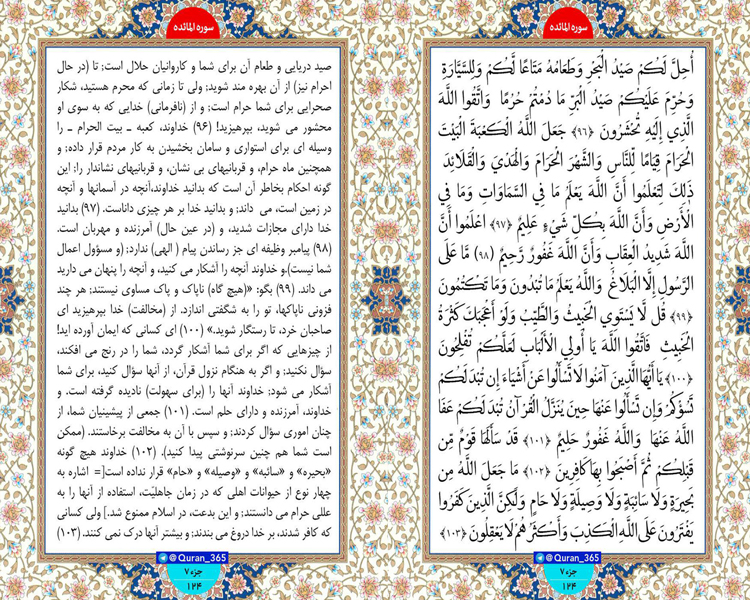 سوره المائده
أُحِلَّ لَكُمْ صَيْدُ الْبَحْرِ وَطَعَامُهُ مَتَاعًا لَّكُمْ وَلِلسَّيَّارَةِ
وَحُرِّمَ عَلَيْكُمْ صَيْدُ الْبَرِّ مَا دُمْتُمْ حُرُمًا وَاتَّقُوا اللَّهَ
الَّذِي إِلَيْهِ تُحْشَرُونَ ﴿٩٦﴾ جَعَلَ اللَّهُ الْكَعْبَةَ الْبَيْتَ
الْحَرَامَ قِيَامًا لِّلنَّاسِ وَالشَّهْرَ الْحَرَامَ وَالْهَدْيَ وَالْقَلَائِدَ
ذَلِكَ لِتَعْلَمُوا أَنَّ اللَّهَ يَعْلَمُ مَا فِي السَّمَاوَاتِ وَمَا فِي
الْأَرْضِ وَأَنَّ اللَّهَ بِكُلِّ شَيْءٍ عَلِيمٌ ﴿٩٧﴾ اعْلَمُوا أَنَّ
اللَّهَ شَدِيدُ الْعِقَابِ وَأَنَّ اللَّهَ غَفُورٌ رَّحِيمٌ ﴿٩٨﴾ مَّا عَلَى
الرَّسُولِ إِلَّا الْبَلَاغُ وَاللَّهُ يَعْلَمُ مَا تُبْدُونَ وَمَا تَكْتُمُونَ
﴿٩٩﴾ قُل لَّا يَسْتَوِي الْخَبِيثُ وَالطَّيِّبُ وَلَوْ أَعْجَبَكَ كَثْرَةُ
الْخَبِيثِ فَاتَّقُوا اللَّهَ يَا أُولِي الْأَلْبَابِ لَعَلَّكُمْ تُفْلِحُونَ
﴿١٠٠﴾ يَا أَيُّهَا الَّذِينَ آمَنُوا لَا تَسْأَلُوا عَنْ أَشْيَاءَ إِن تُبْدَ لَكُمْ
تَسُؤْكُمْ وَإِن تَسْأَلُوا عَنْهَا حِينَ يُنَزَّلُ الْقُرْآنُ تُبْدَ لَكُمْ عَفَا
اللَّهُ عَنْهَا وَاللَّهُ غَفُورٌ حَلِيمٌ ﴿١٠١﴾ قَدْ سَأَلَهَا قَوْمٌ مِّن
قَبْلِكُمْ ثُمَّ أَصْبَحُوا بِهَا كَافِرِينَ ﴿١٠٢﴾ مَا جَعَلَ اللَّهُ مِن
بَحِيرَةٍ وَلَا سَائِبَةٍ وَلَا وَصِيلَةٍ وَلَا حَامٍ وَلَكِنَّ الَّذِينَ كَفَرُوا
يَفْتَرُونَ عَلَى اللَّهِ الْكَذِبَ وَأَكْثَرُهُمْ لَا يَعْقِلُونَ ﴿١٠٣﴾
@Quran_365
جزء ۷
۱۲۴
سوره المائده
صید دریایی و طعام آن برای شما و کاروانیان حلال است؛ تا (در حال
احرام نیز) از آن بهره مند شوید; ولی تا زمانی که محرم هستید، شکار
صحرایی برای شما حرام است; و از (نافرمانی) خدایی که به سوی او
محشور می شوید، بپرهیزید! (۹۶) خداوند، کعبه ـ بیت الحرام ـ را
وسیله ای برای استواری و سامان بخشیدن به کار مردم قرار داده; و
همچنین ماه حرام، و قربانیهای بی نشان، و قربانیهای نشاندار را; این
گونه احکام بخاطر آن است که بدانید خداوند،آنچه در آسمانها و آنچه
در زمین است، می داند; و بدانید خدا بر هر چیزی داناست. (۹۷) بدانید
خدا دارای مجازات شدید، و (در عین حال) آمرزنده و مهربان است.
(۹۸) پیامبر وظیفه ای جز رساندن پیام ( الهی) ندارد; (و مسؤول اعمال
شما نیست).و خداوند آنچه را آشکار می کنید، و آنچه را پنهان می دارید
می داند. (۹۹) بگو: «(هیچ گاه) ناپاک و پاک مساوی نیستند; هر چند
فزونی ناپاکها، تو را به شگفتی اندازد. از (مخالفت) خدا بپرهیزید ای
صاحبان خرد، تا رستگار شوید.» (۱۰۰) ای کسانی که ایمان آورده اید!
از چیزهایی که اگر برای شما آشکار گردد، شما را در رنج می افکند،
سؤال نکنید; و اگر به هنگام نزول قرآن، از آنها سؤال کنید، برای شما
آشکار می شود; خداوند آنها را (برای سهولت) نادیده گرفته است. و
خداوند، آمرزنده و دارای حلم است. (۱۰۱) جمعی از پیشینیان شما، از
چنان اموری سؤال کردند; و سپس با آن به مخالفت برخاستند. (ممکن
است شما هم چنین سرنوشتی پیدا کنید). (۱۰۲) خداوند هیچ گونه
«بحیره» و «سائبه» و «وصیله» و «حام» قرار نداده است[= اشاره به
چهار نوع از حیوانات اهلی که در زمان جاهلیّت، استفاده از آنها را به
عللی حرام می دانستند; و این بدعت، در اسلام ممنوع شد.] ولی کسانی
که کافر شدند، بر خدا دروغ می بندند; و بیشتر آنها درک نمی کنند. (۱۰۳)
@Quran_365
جزء ۷
۱۲۴